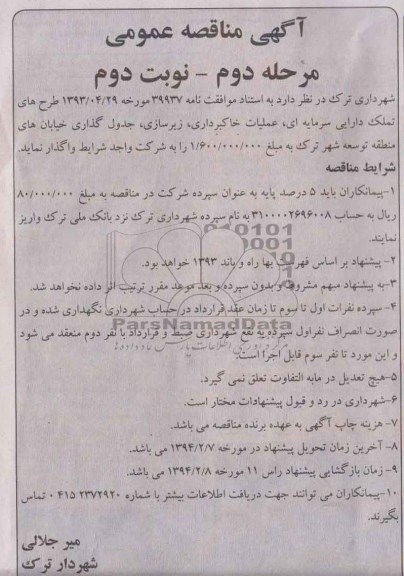 آگهی مناقصه عمومی
مرحله دوم - نوبت دوم
شهرداری ترك در نظر دارد به استناد موافقت نامه ۳۹۹۳۷ مورخه ۱۳۹۳/۰۴/۲۹ طرح های
تملک دارایی سرمایه ای، عملیات خاکبرداری، زیرسازی، جدول گذاری خیابان های
منطقه توسعه شهر ترک به مبلغ ۱/۶۰۰/۰۰۰/۰۰۰ را به شرکت واجد شرایط واگذار نماید.
شرایط مناقصه
۱-پیمانکاران باید ۵ درصد پایه به عنوان سپرده شرکت در مناقصه به مبلغ ۸۰/۰۰۰/۰۰۰
ریال به حساب ۳۱۰۰۰۰۲۶۹۶۰۰۸ به نام سپرده شهرداری ترک نزد بانک ملی ترک واریز
نمایند.
۲- پیشنهاد بر اساس فهرست بها راه و باند ۱۳۹۳ خواهد بود.
۳-به پیشنهاد مبهم مشروط و بدون سپرده و بعد موعد مقرر ترتیب اثر داده نخواهد شد.
۴- سپرده نفرات اول تا سوم تا زمان عقد قرارداد در حساب شهرداری نگهداری شده و در
صورت انصراف نفراول سپرده به نفع شهرداری ضبط و قرارداد با نفر دوم منعقد می شود
و این مورد تا نفر سوم قابل اجرا است.
۵-هیچ تعدیل در مابه التفاوت تعلق نمی گیرد.
۶-شهرداری در رد و قبول پیشنهادات مختار است.
۷- هزینه چاپ آگهی به عهده برنده مناقصه می باشد.
۸- آخرین زمان تحویل پیشنهاد در مورخه ۱۳۹۴/۲/۷ می باشد.
۹- زمان بازگشایی پیشنهاد راس ۱۱ مورخه ۱۳۹۴/۲/۸ می باشد.
۱۰-پیمانکاران می توانند جهت دریافت اطلاعات بیشتر با شماره ۲۳۷۲۹۲۰ ۰۴۱۵ تماس
بگیرند.
میر جلالی
شهردار ترک
ParsNamadData